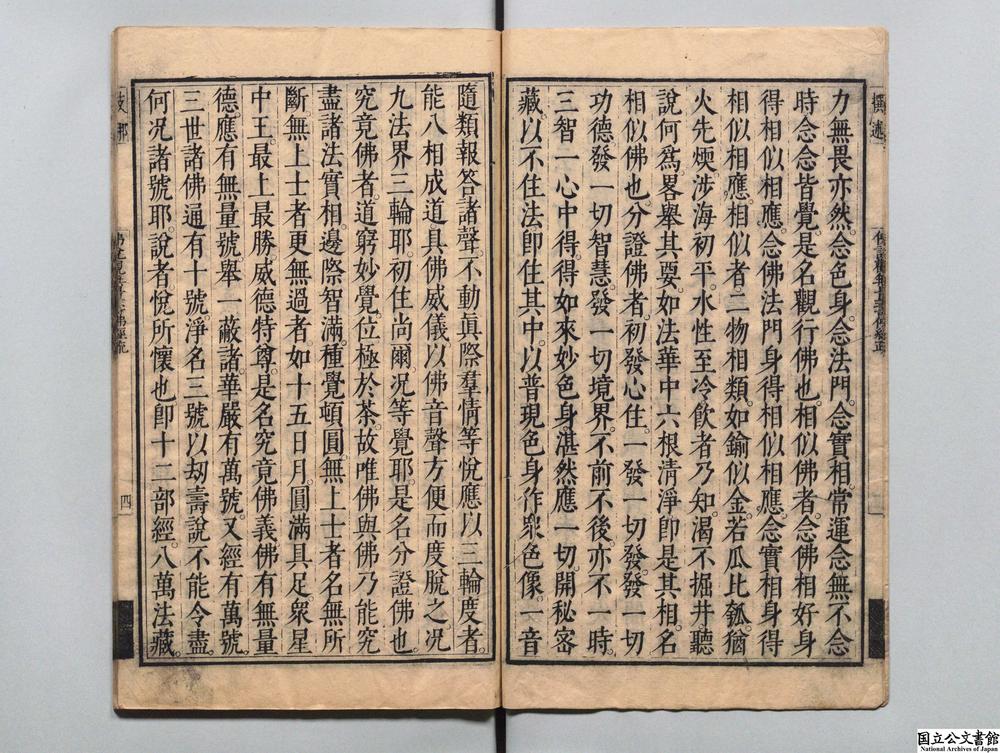 力無畏亦然。念色身。念法門。念實相。常運念無不念
時念念皆覺。是名觀行佛也。相似佛者。念佛相好身
得相似相應。念佛法門身得相似相應。念實相身得
相似相應。相似者二物相類。如鍮似金。若瓜比瓠。猶
火先煗。涉海初平。水性至冷飲者乃知。渴不掘井聽
說何爲。畧舉其要。如法華中六根清淨即是其相。名
相似佛也。分證佛者。初發心住。一發一切發。發一切
功德發一切智慧。發一切境界。不前不後亦不一時
三智一心中得。得如來妙色身湛然應一切。開秘密
藏。以不住法即住其中。以普現色身作衆色像。一音
隨類報答諸聲。不動眞際羣情等悅應以三輪度者。
能八相成道具佛威儀以佛音聲方便而度脫之。况
九法界三輪耶。初住尚爾。況等覺耶。是名分證佛也
究竟佛者。道窮妙覺。位極於茶。故唯佛與佛乃能究
盡諸法實相。邊際智滿。種覺頓圓。無上士者名無所
斷無上士者更無過者。如十五日月。圓滿具足。衆星
中王。最上最勝。威德特尊。是名究竟佛義佛有無量
德。應有無量號。舉一蔽諸。華嚴有萬號。又經有萬號。
三世諸佛通有十號。淨名三號以劫壽說不能令盡。
何况諸號耶。說者。悅所懷也即十二部經。八萬法藏
四
国立公文書館
National Archives of Japan